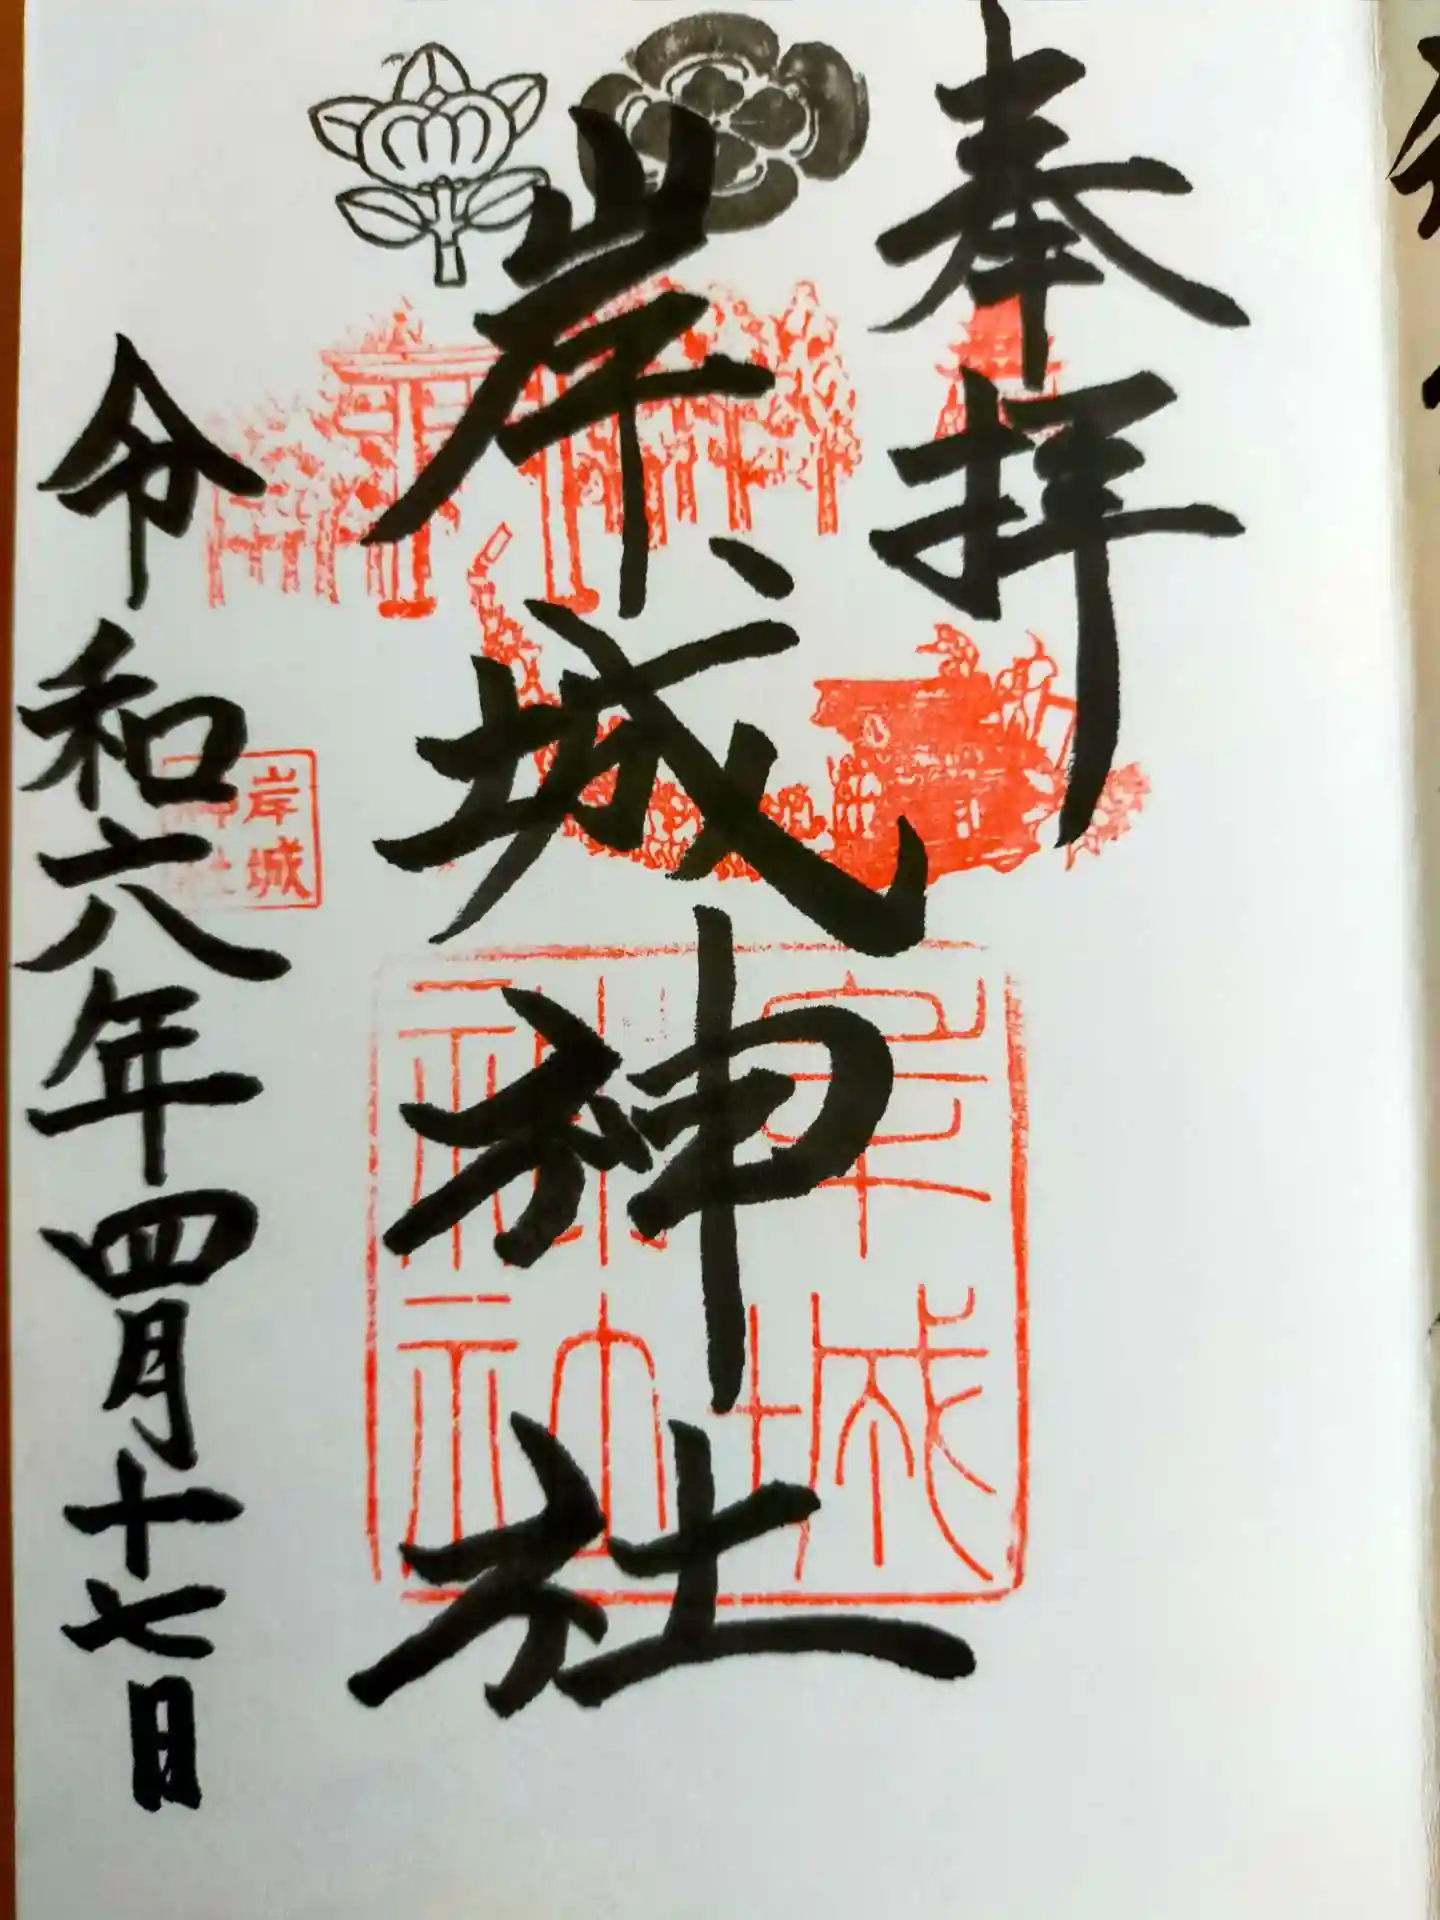 奉拝
岸城神社
令和六年四月十七日
岸城
岸城
神社